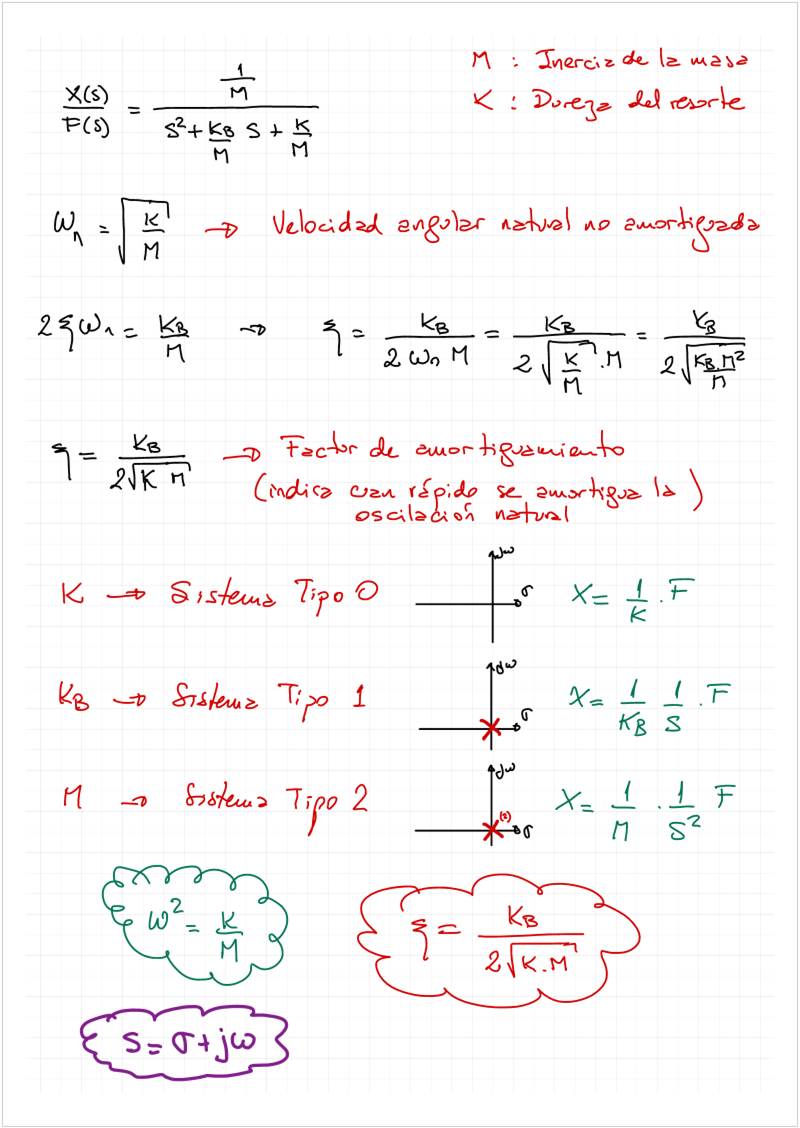 X(s)/F(s) = (1/M) / (S² + (K_B/M) S + K/M)
M : Inercia de la masa
K : Dureza del resorte
ω_n = √(K/M) → Velocidad angular natural no amortiguada
2 ξ ω_n = K_B/M → ξ = K_B/(2 ω_n M) = K_B/(2 √(K/M) . M) = K_B/(2 √(K_B . M²/M))
ξ = K_B/(2√(K M)) → Factor de amortiguamiento
(indica cuan rápido se amortigua la)
oscilación natural
K → Sistema Tipo 0 jω σ X = 1/K . F
K_B → Sistema Tipo 1 jω σ X = 1/K_B 1/S . F
M → Sistema Tipo 2 jω (2) σ X = 1/M . 1/S² F
ω² = K/M
ξ = K_B/(2√(K.M))
S = σ + jω